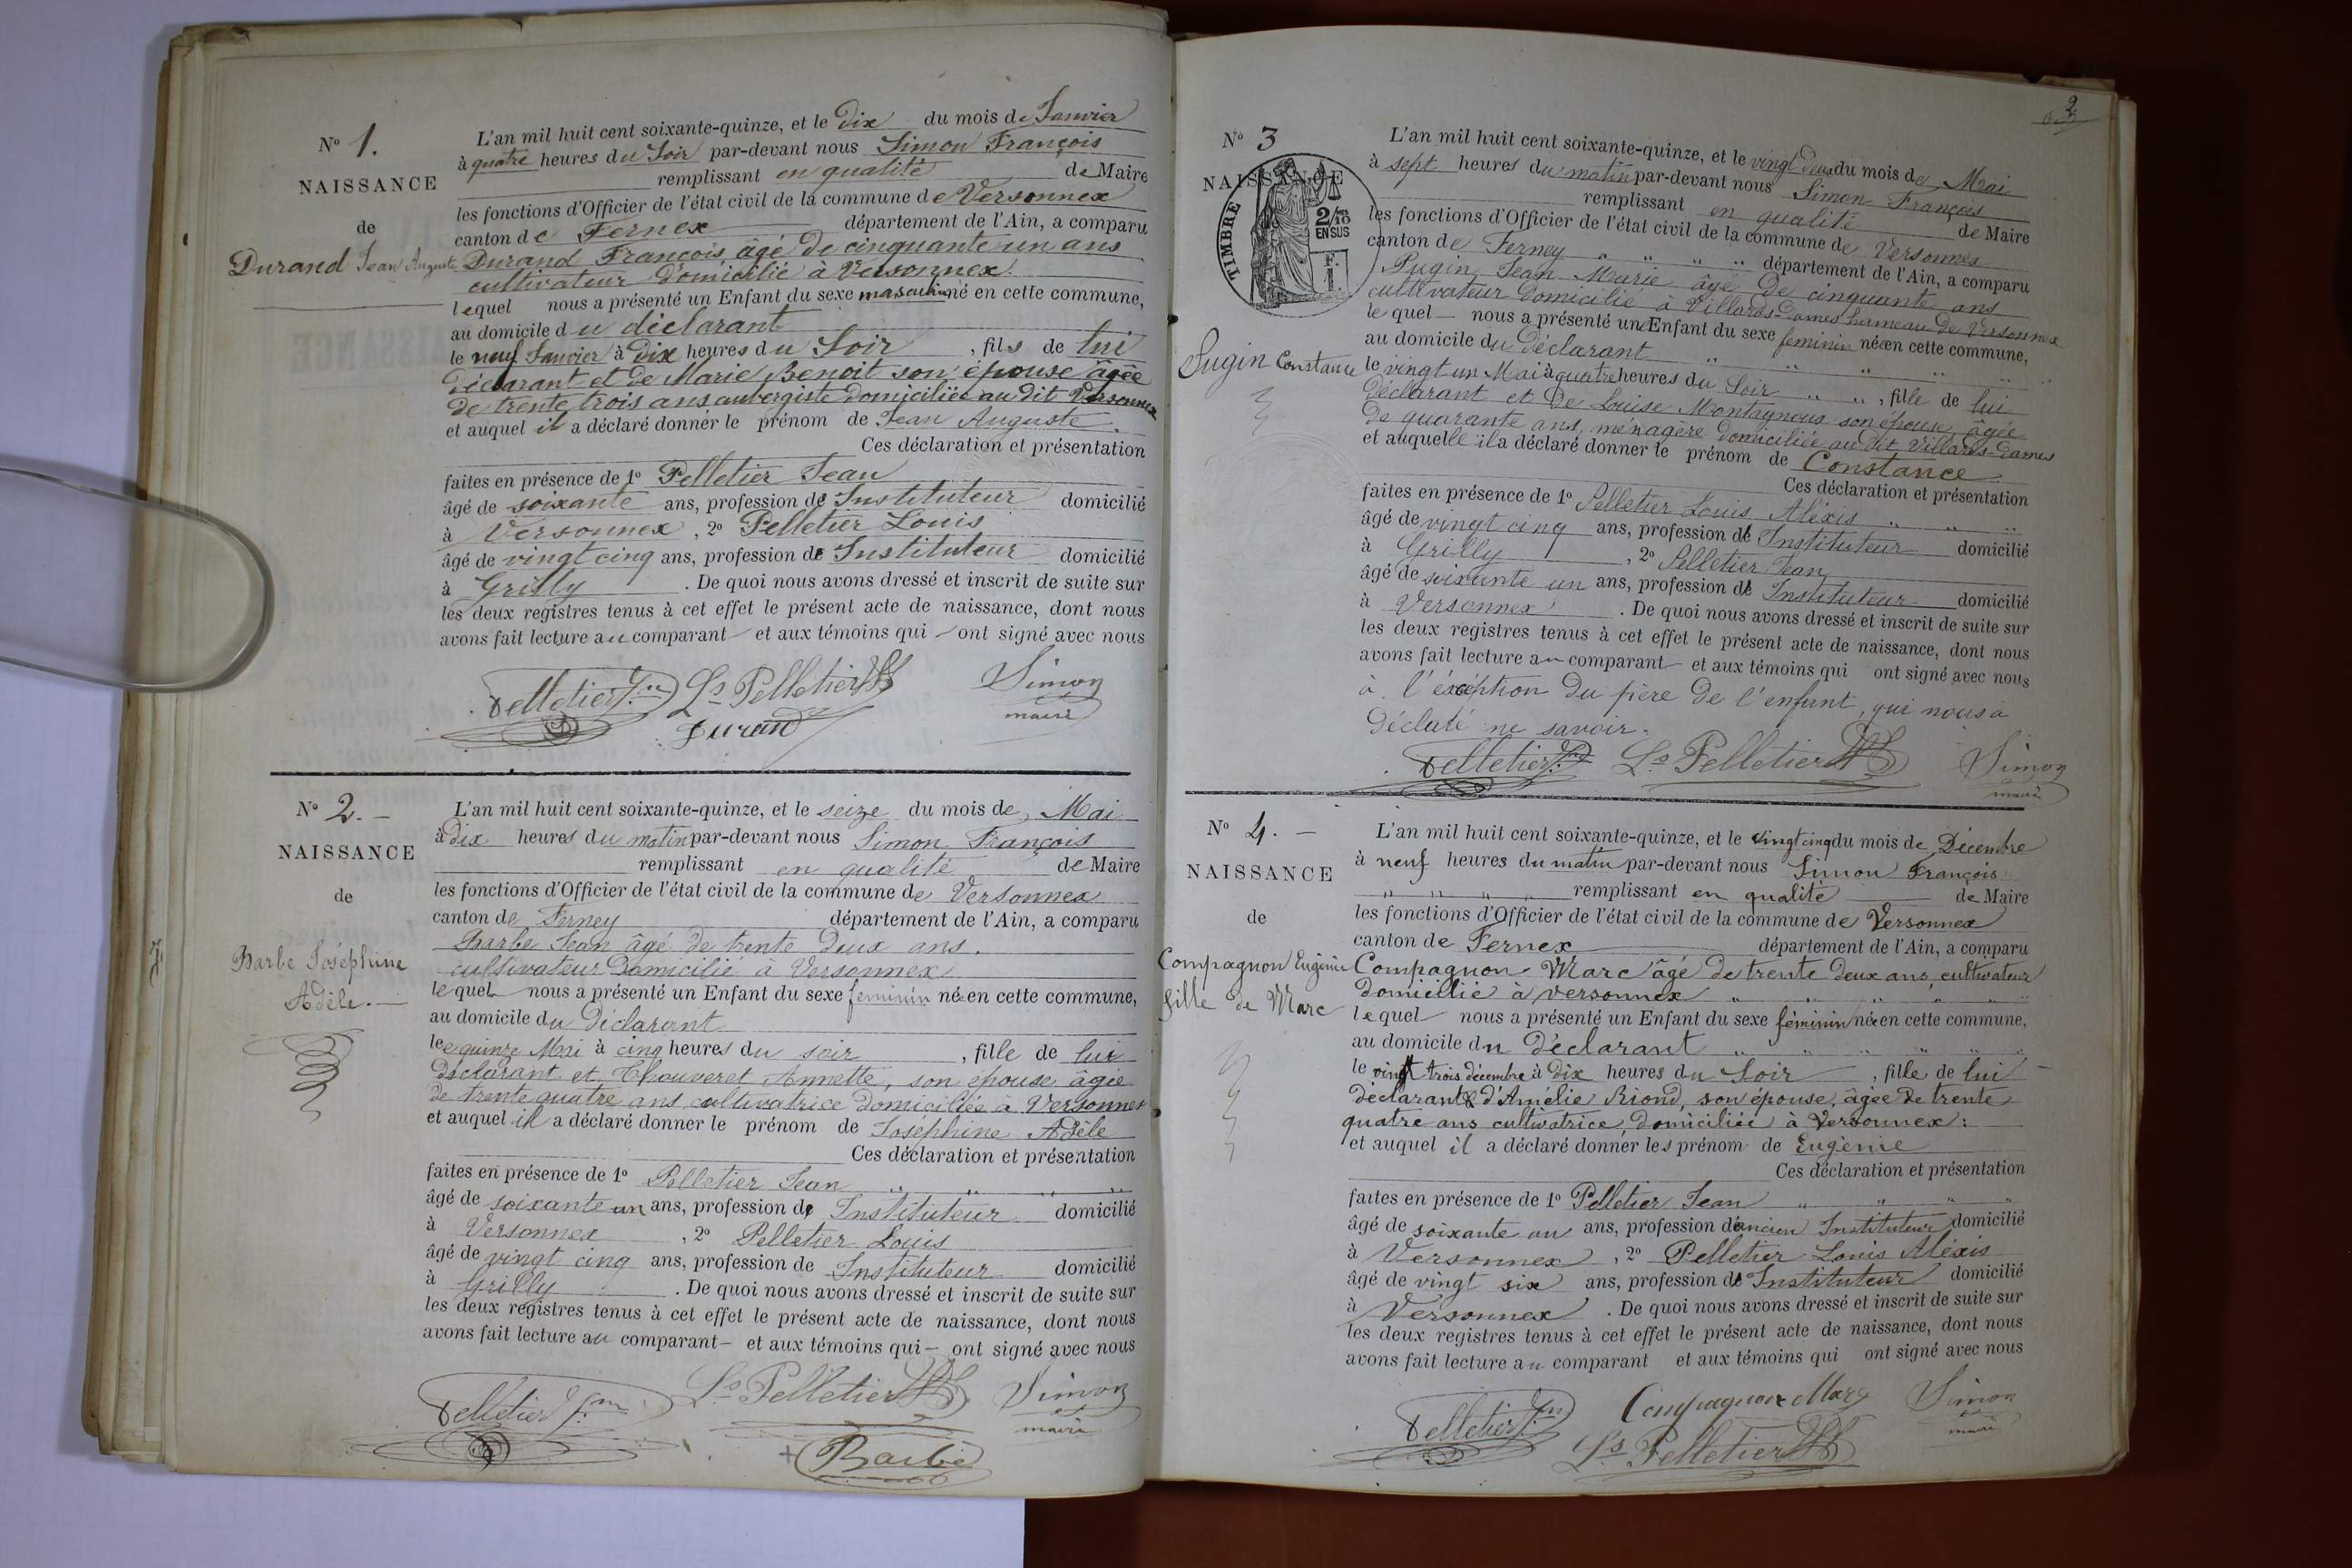 N° 1.
NAISSANCE
de
Durand Jean Auguste
L'an mil huit cent soixante-quinze, et le Dix du mois de Janvier
à quatre heures du Soir par-devant nous Simon François
remplissant en qualité de Maire
les fonctions d'Officier de l'état civil de la commune de Versonnex
canton de Fernex département de l'Ain, a comparu
Durand François, âgé de cinquante un ans
cultivateur Domicilié à Versonnex.
lequel nous a présenté un Enfant du sexe masculin né en cette commune,
au domicile du déclarant
le neuf Janvier à Dix heures du Soir, fils de lui
déclarant et de Marie Benoit son épouse âgée
de trente trois ans aubergiste domiciliée au dit Versonnex
et auquel il a déclaré donner le prénom de Jean Auguste.
Ces déclaration et présentation
faites en présence de 1° Pelletier Jean
âgé de soixante ans, profession de Instituteur domicilié
à Versonnex, 2° Pelletier Louis
âgé de vingt cinq ans, profession de Instituteur domicilié
à Grilly. De quoi nous avons dressé et inscrit de suite sur
les deux registres tenus à cet effet le présent acte de naissance, dont nous
avons fait lecture au comparant et aux témoins qui ont signé avec nous
Pelletier Jn Ls Pelletier Simon
maire
Durand
N° 2. -
NAISSANCE
de
Barbe Joséphine
Adèle. -
L'an mil huit cent soixante-quinze, et le seize du mois de Mai
à dix heures du matin par-devant nous Simon François
remplissant en qualité de Maire
les fonctions d'Officier de l'état civil de la commune de Versonnex
canton de Ferney département de l'Ain, a comparu
Barbe Jean âgé de trente deux ans.
cultivateur Domicilié à Versonnex
lequel nous a présenté un Enfant du sexe feminin née en cette commune,
au domicile du Déclarant
le quinze Mai à cinq heures du soir, fille de lui
déclarant et Chouveret Annette, son épouse âgée
de trente quatre ans cultivatrice domiciliée à Versonnex
et auquel il a déclaré donner le prénom de Joséphine Adèle
Ces déclaration et présentation
faites en présence de 1° Pelletier Jean
âgé de soixante un ans, profession de Instituteur domicilié
à Versonnex, 2° Pelletier Louis
âgé de vingt cinq ans, profession de Instituteur domicilié
à Grilly. De quoi nous avons dressé et inscrit de suite sur
les deux registres tenus à cet effet le présent acte de naissance, dont nous
avons fait lecture au comparant - et aux témoins qui - ont signé avec nous
Pelletier Jn Ls Pelletier Simon
maire
Barbe
2
N° 3
NAISSANCE
TIMBRE
2/10
EN SUS
F.
1
Pugin Constance
L'an mil huit cent soixante-quinze, et le vingt deux du mois de Mai
à sept heures du matin par-devant nous Simon François
remplissant en qualité de Maire
les fonctions d'Officier de l'état civil de la commune de Versonnex
canton de Ferney " " " " département de l'Ain, a comparu
Pugin Jean Marie âgé de cinquante ans
cultivateur Domicilié à Villards-Dames hameau de Versonnex
lequel - nous a présenté un Enfant du sexe feminin née en cette commune,
au domicile du Déclarant " " " " "
le vingt un Mai à quatre heures du Soir " ", fille de lui
déclarant et De Louise Montagnous son épouse âgée
de quarante ans, ménagère Domiciliée au Dit Villards-Dames
et auquelle il a déclaré donner le prénom de Constance
Ces déclaration et présentation
faites en présence de 1° Pelletier Louis Aléxis " " "
âgé de vingt cinq ans, profession de Instituteur domicilié
à Grilly, 2° Pelletier Jean
âgé de soixante un ans, profession de Instituteur domicilié
à Versonnex. De quoi nous avons dressé et inscrit de suite sur
les deux registres tenus à cet effet le présent acte de naissance, dont nous
avons fait lecture au comparant et aux témoins qui ont signé avec nous
à l'éxception du père de l'enfant, qui nous a
Déclaré ne savoir.
Pelletier Jn Ls Pelletier Simon
maire
N° 4. -
NAISSANCE
de
Compagnon Eugénie
fille de Marc
L'an mil huit cent soixante-quinze, et le vingt cinq du mois de Décembre
à neuf heures du matin par-devant nous Simon François
" " " " remplissant en qualité de Maire
les fonctions d'Officier de l'état civil de la commune de Versonnex
canton de Fernex département de l'Ain, a comparu
Compagnon Marc âgé de trente deux ans, cultivateur
domicilié à Versonnex " " " " "
lequel nous a présenté un Enfant du sexe féminin née en cette commune,
au domicile du Déclarant " " " " "
le vingt trois décembre à dix heures du Soir, fille de lui
déclarant & d'Amélie Riond, son épouse, âgée de trente
quatre ans cultivatrice, domiciliée à Versonnex:
et auquel il a déclaré donner les prénom de Eugènie
Ces déclaration et présentation
faites en présence de 1° Pelletier Jean " " " "
âgé de soixante un ans, profession d'ancien Instituteur domicilié
à Versonnex, 2° Pelletier Louis Aléxis
âgé de vingt six ans, profession de Instituteur domicilié
à Versonnex. De quoi nous avons dressé et inscrit de suite sur
les deux registres tenus à cet effet le présent acte de naissance, dont nous
avons fait lecture au comparant et aux témoins qui ont signé avec nous
Pelletier Jn Compagnon Marc Simon
maire
Ls Pelletier